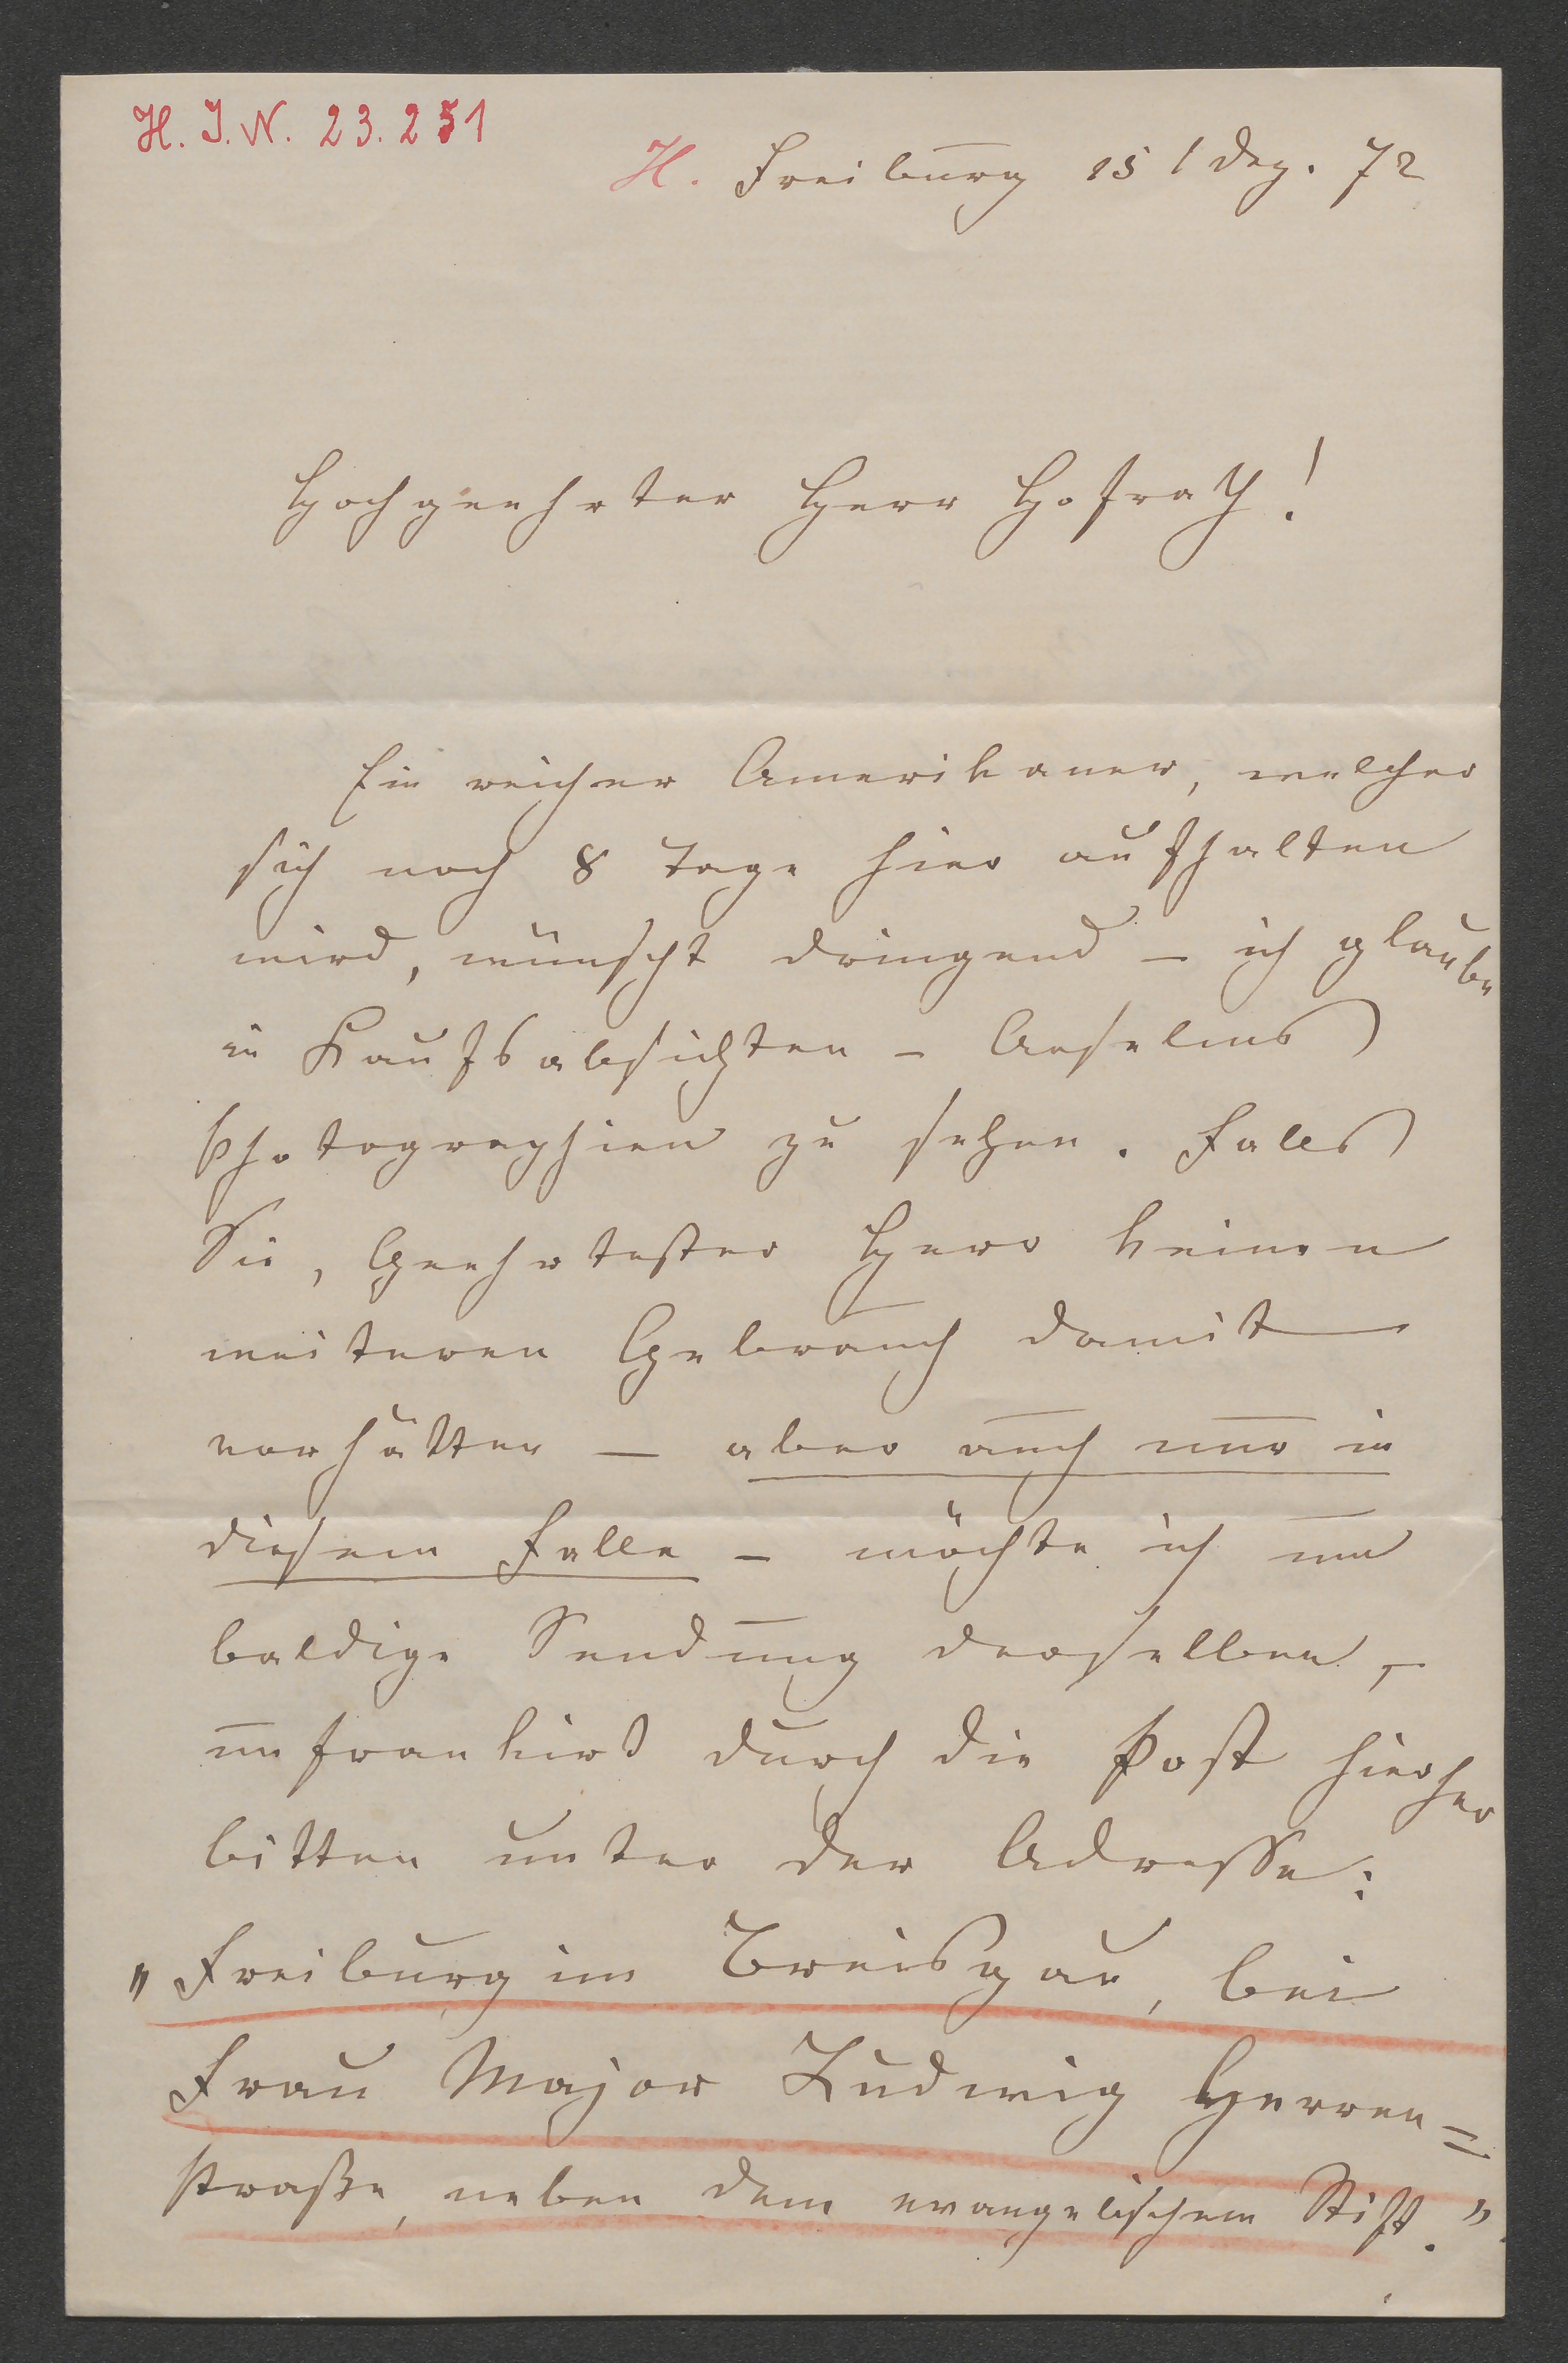 H. I. N. 23.251
H. Freiburg 15 / Dez. 72
Hochgeehrter Herr Hofrath!
Ein reicher Amerikaner, welcher
sich noch 8 Tage hier aufhalten
wird, wünscht dringend – ich glaube
in Kaufsabsichten – Anselms
Photographien zu sehen. Falls
Sie, Geehrtester Herr keinen
weiteren Gebrauch damit
vorhätten – aber auch nur in
diesem Falle – möchte ich um
baldige Sendung derselben,
unfrankirt durch die Post hierher
bitten unter der Adresse:
„Freiburg im Breisgau, bei
Frau Major Ludwig Herren=
straße, neben dem evangelischem Stift."